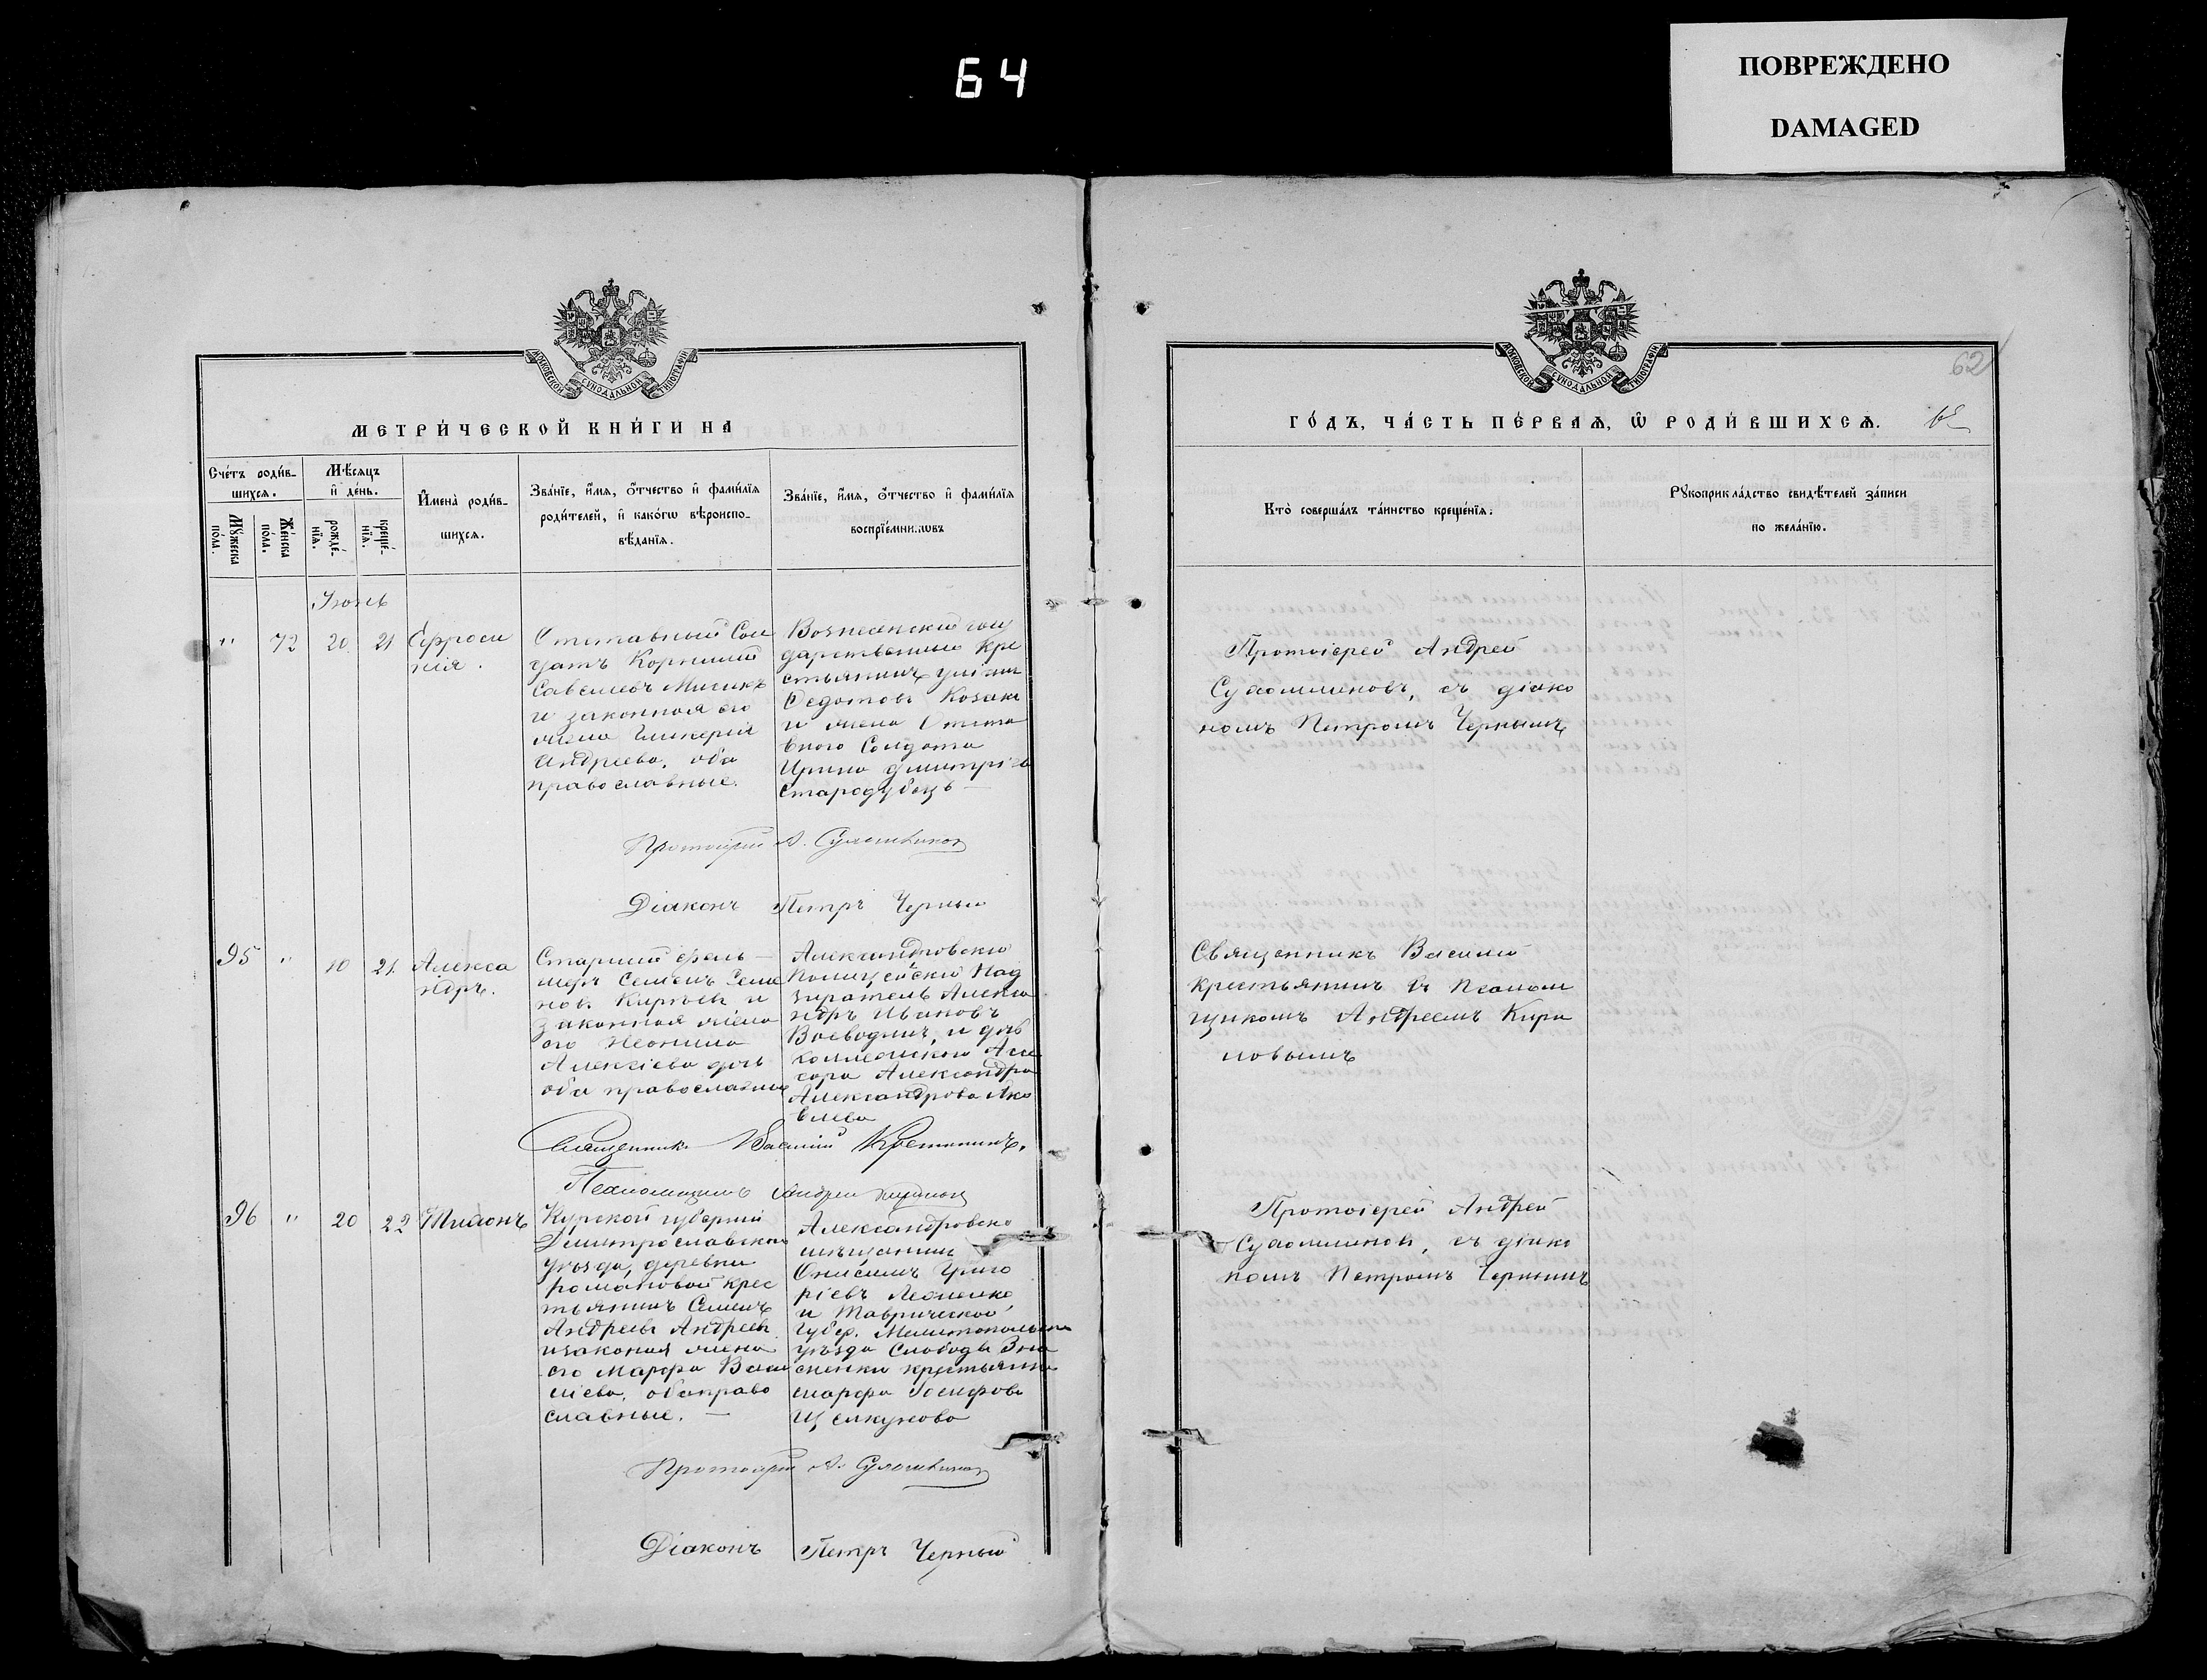 64
ПОВРЕЖДЕНО
DAMAGED
МОСКОВСКОЙ СѴНОДАЛЬНОЙ ТИПОГРАФІИ
МЕТРИ́ЧЕСКОЙ КНИ́ГИ НА
Сче́тъ роди́в-
шихсѧ.
Мѣ́сѧцъ
и҆ де́нь.
И҆мена̀ роди́в-
шихсѧ.
Зва́нїе, и҆́мѧ, ѻ҆́тчество и҆ фами́лїѧ
роди́телей, и҆ како́гѡ вѣроиспо-
вѣ́данїѧ.
Зва́нїе, и҆́мѧ, ѻ҆́тчество и҆ фами́лїѧ
воспрїе́мниковъ
Мꙋ́жеска
по́ла.
Же́нска
по́ла.
рожде́-
нїѧ.
креще́-
нїѧ.
Іюнь
" 72 20 21
Ефроси
нія.
Отставный Сол
датъ Корнилій
Савельевъ
и законная его
жена Гликерія
Андреева, оба
православные.
Вознесенскій госу
дарственный кре
стьянинъ
Федотовъ Козакъ
и жена Отста
вного Солдата
Ирина Дмитріева
Стародубецъ
Протоіерей А. Сухомлиновъ
Діаконъ Петръ Черный
95 " 10 21
Алекса
ндръ.
Старшій фельд
шеръ Семенъ Семе
новъ и
законная жена
его Неонила
Алексіева дочь
оба православные
Александровскій
Полицейскій Над
зиратель Алекса
ндръ Ивановъ
Воеводинъ, и дочь
коллежскаго Ассе
сора Александра
Александрова Яко
влева
Священникъ Василій Крестьянинъ.
Псаломщикъ Андрей Кириловъ
96 " 20 22
Тихонъ
Курской губерніи
Дмитрославскаго
уѣзда, деревни
Романовой крес
тьянинъ Семенъ
Андреевъ Андреевъ
и законая жена
его Марфа Васи
лїева, оба право
славные.
Александровскій
мѣщанинъ
Онисимъ Григо
ріевъ
и Таврической
Губер. Мелитопольскаго
уѣзда Слободы Зна
менки крестьянка
Марфа Іосифова
Щелкунова
Протоіерей А. Сухомлиновъ
Діаконъ Петръ Черный
62
МОСКОВСКОЙ СѴНОДАЛЬНОЙ ТИПОГРАФІИ
ГО́ДЪ, ЧА́СТЬ ПЕ́РВАѦ, Ѽ РОДИ́ВШИХСѦ.
Кто̀ соверша́лъ та́инство креще́нїѧ:
Рꙋкоприкла́дство свидѣ́телей за́писи
по жела́нїю.
Протоіерей Андрей
Сухомлиновъ, съ діако
номъ Петромъ Чернымъ
Священникъ Василій
Крестьянинъ съ Псалом
щикомъ Андреемъ Кири
ловымъ
Протоіерей Андрей
Сухомлиновъ, съ діако
номъ Петромъ Чернымъ